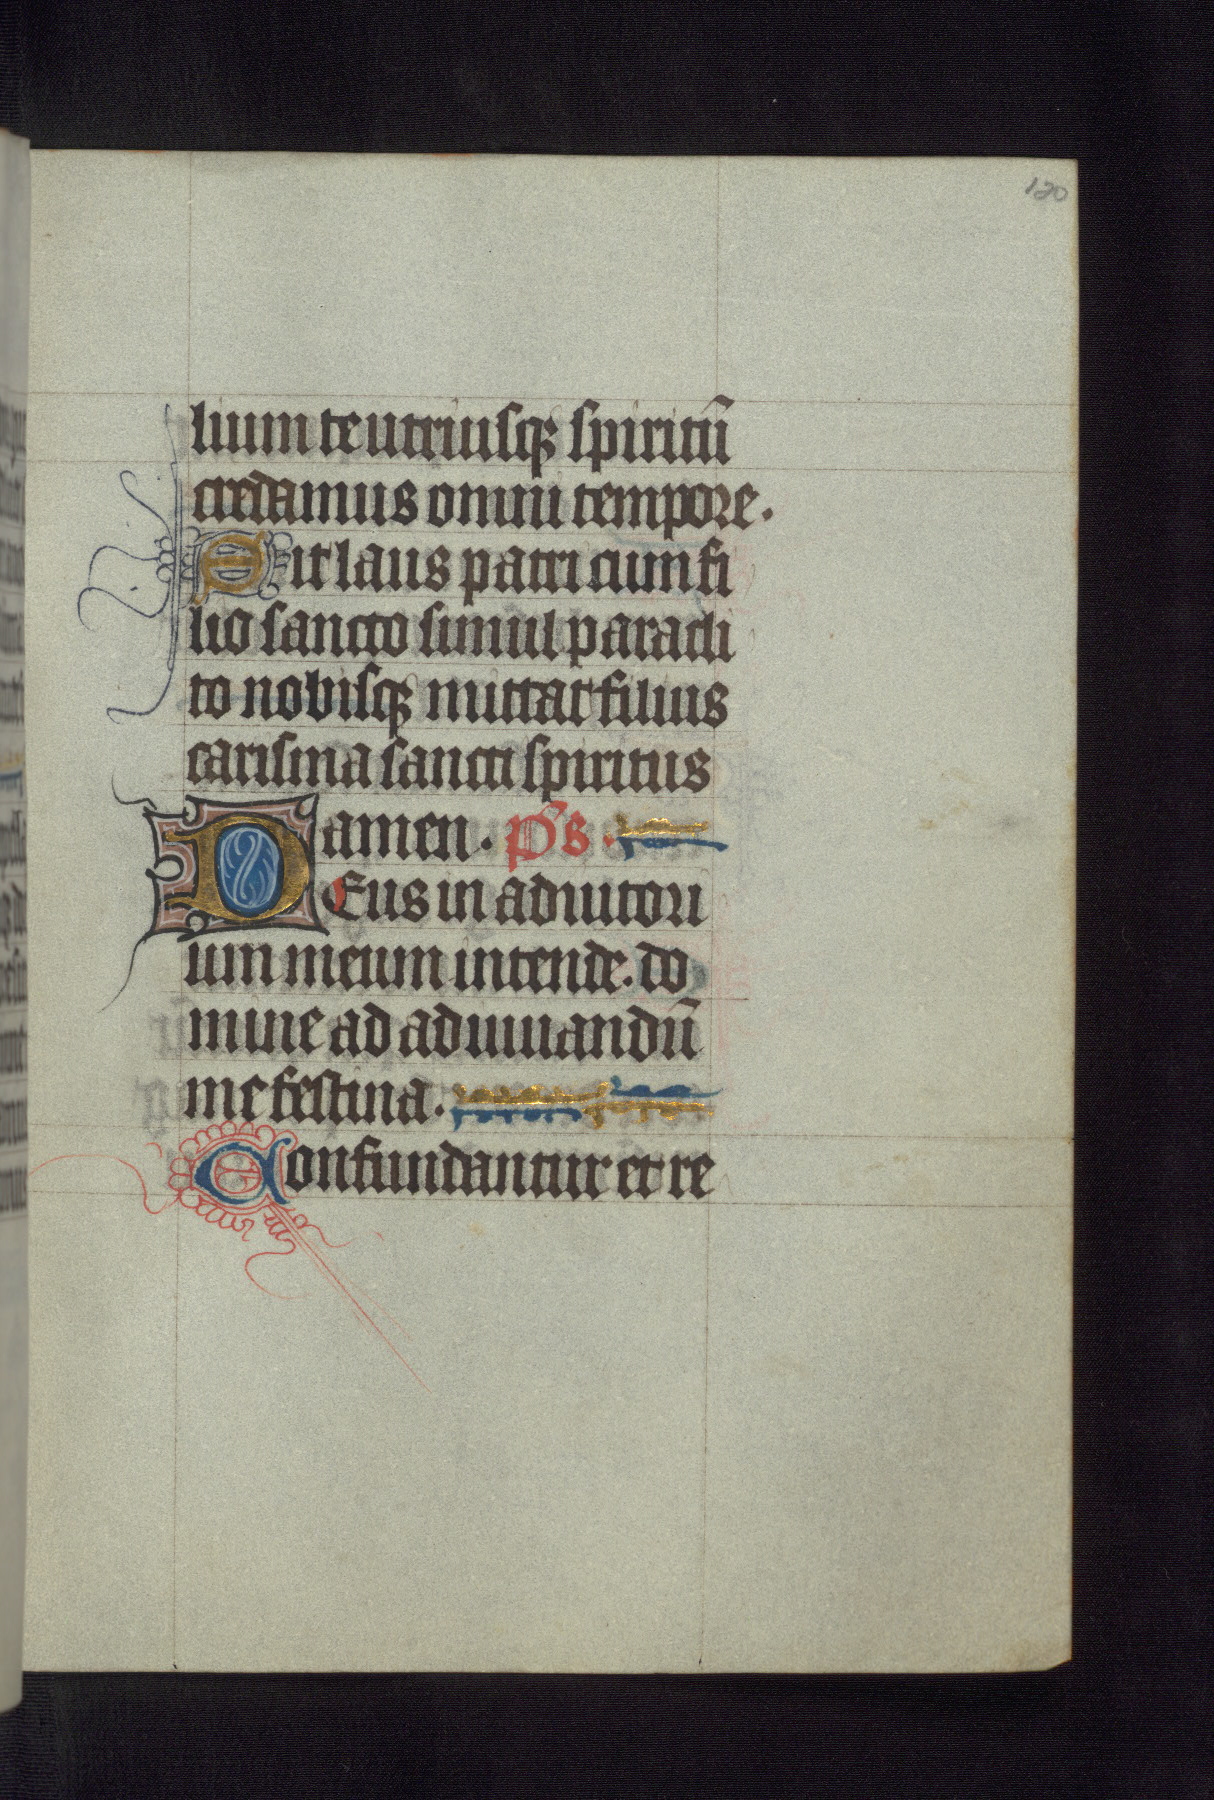 120
lium te utriusqꝫ spiritū
credamus omni tempore.
Sit laus patri cum fi
lio sancto simul paracli
to nobisqꝫ mittat filius
carisma sancti spiritus
amen. p̄s.
DEus in adiutori
um meum intende. do
mine ad adiuuandū
me festina.
Confundantur et re